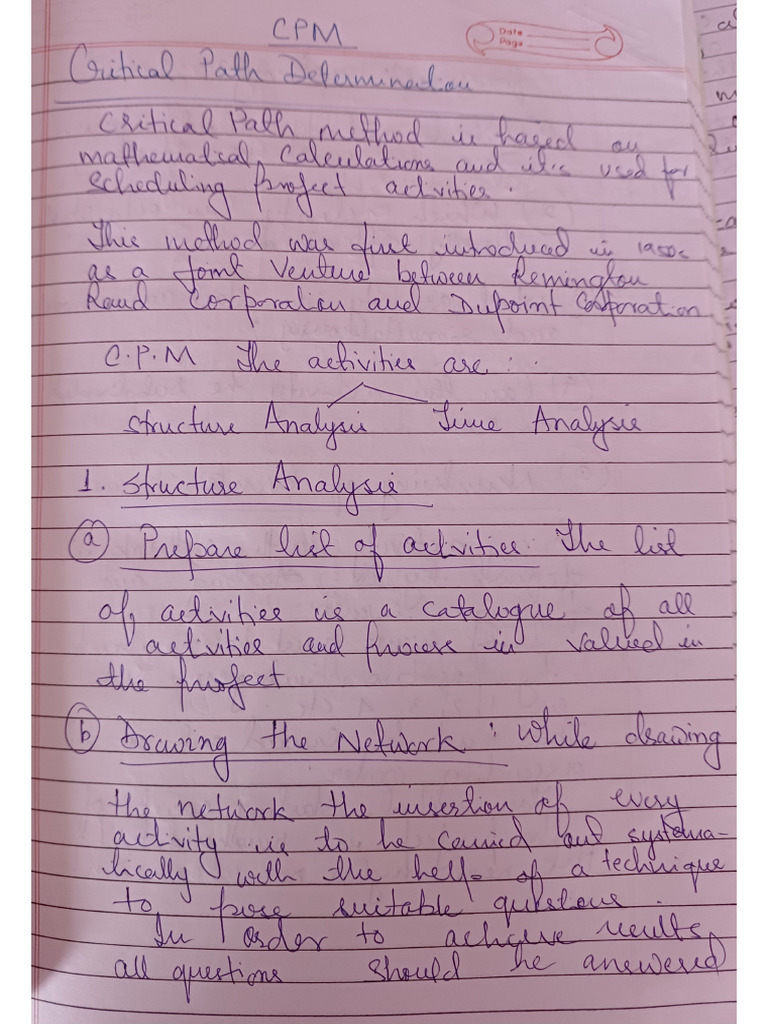 CPM
Date
Page
Critical Path Determination
Critical Path method is based on
mathematical calculations and it is used for
scheduling project activities.
This method was first introduced in 1950s
as a Joint Venture between Remington
Rand Corporation and Dupoint Corporation
C.P.M The activities are :
Structure Analysis Time Analysis
1. Structure Analysis
(a) Prepare list of activities. The list
of activities is a catalogue of all
activities and process in valued in
the project
(b) Drawing the Network : while drawing
the network the insertion of every
activity is to be carried out systema-
tically with the help of a technique
to pose suitable questions.
In order to achieve results,
all questions should be answered